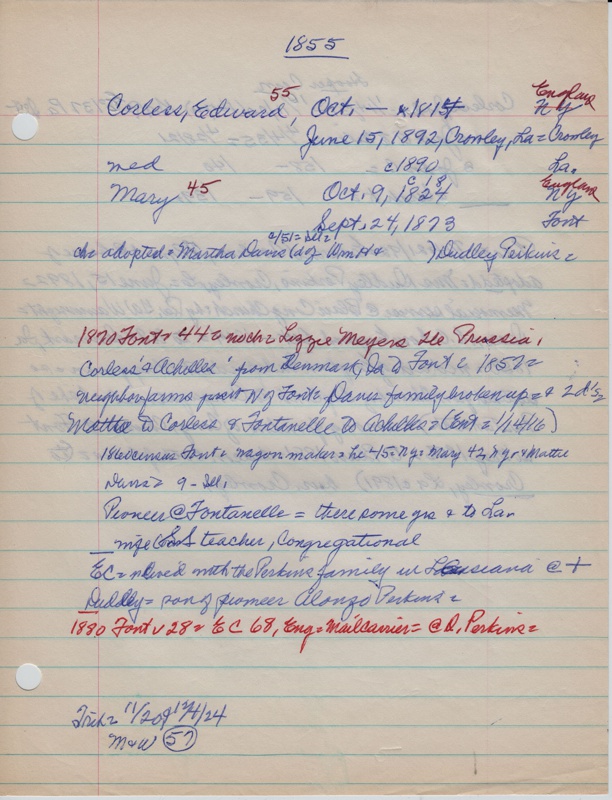 1855
Corless, Edward 55, Oct. — 1815 England NY
June 15, 1892, Crowley, La = Crowley
med c1890 La.
Mary 45 Oct. 9, 1824 c 18 England NY
Sept. 24, 1873 Font
c/51 = Ill =
ch = adopted = Martha Davis (d of Wm H & ) Dudley Perkins =
1870 Font = 44 = noch = Lizzie Meyers 21e Prussia.
Corless' & Achilles' from Denmark, Ia to Font c 1857 =
Neighbor farms just N of Font = Davis family broken up = & 2 d's =
Mattie to Corless & Fontanelle to Achilles = (Ent = 1/14/16)
1860 census Font = wagon maker = he 45 = NY = Mary 42, NY = & Mattie
Davis = 9 - Ill.
Pioneer @ Fontanelle = there some yrs & to La.
wife SS teacher, Congregational
EC = moved with the Perkins family in Louisiana @ +
Dudley = son of pioneer Alonzo Perkins =
1880 Font v 28 = EC 68, Eng = Mail carrier = @ D. Perkins =
Trib = 11/20 & 12/4/24
M & W 57